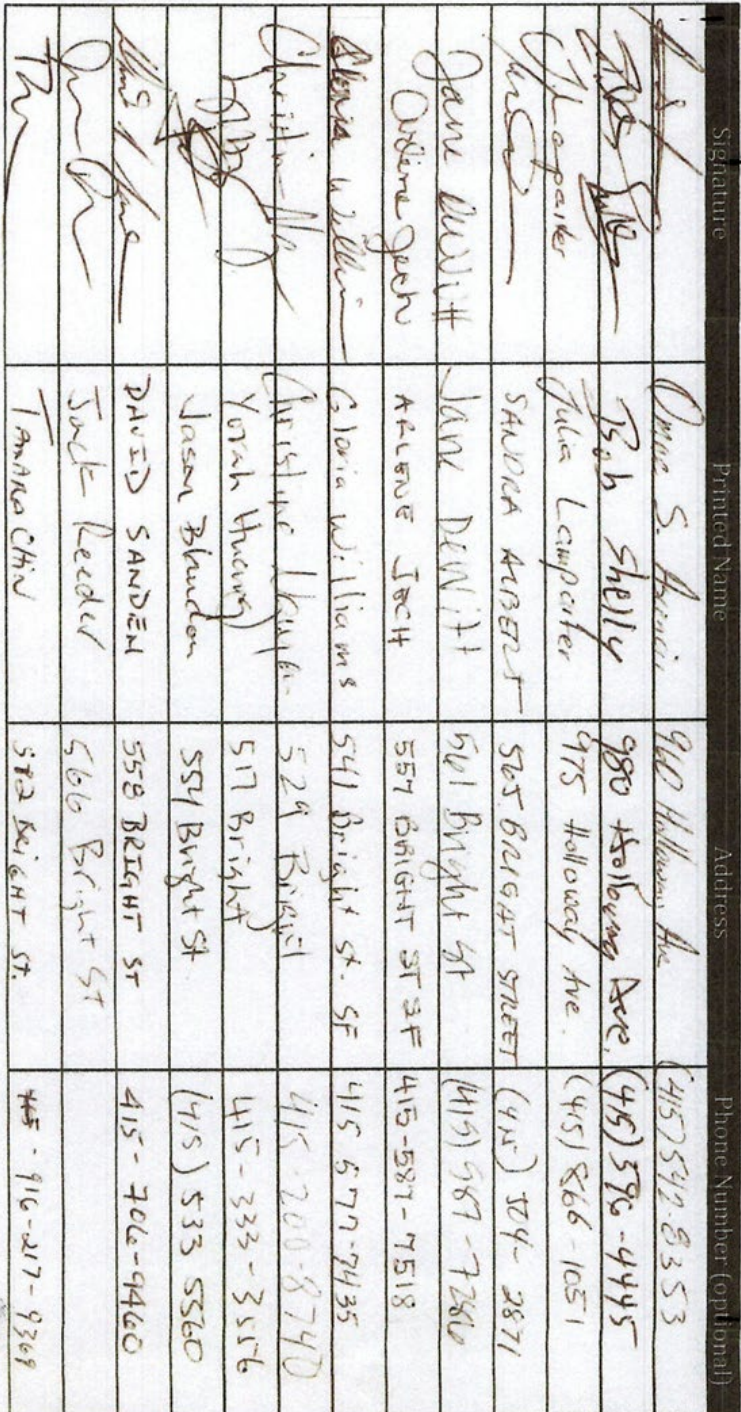 Signature Printed Name Address Phone Number (optional)
Omar S. 960 Holloway Ave (415) 542-8353
Bob Shelly 980 Holloway Ave. (415) 596-4445
JLampater Julia Lampater 975 Holloway Ave. (415) 866-1051
SANDRA ALBERT 565 BRIGHT STREET (415) 504-2871
Jane DeWitt Jane DeWitt 561 Bright St (415) 587-7286
Arlene Joch ARLENE JOCH 557 BRIGHT ST SF 415-587-7518
Gloria Williams Gloria Williams 541 Bright St. SF 415 577-7435
Christine 529 Bright 415-200-8740
Yorah Huang 517 Bright 415-333-3556
Jason Blundon 554 Bright St (415) 533 5560
DAVID SANDEN 558 BRIGHT ST 415-706-9460
Jack Reeder 566 Bright St
TAMARA CHIN 572 BRIGHT ST. 916-217-9369